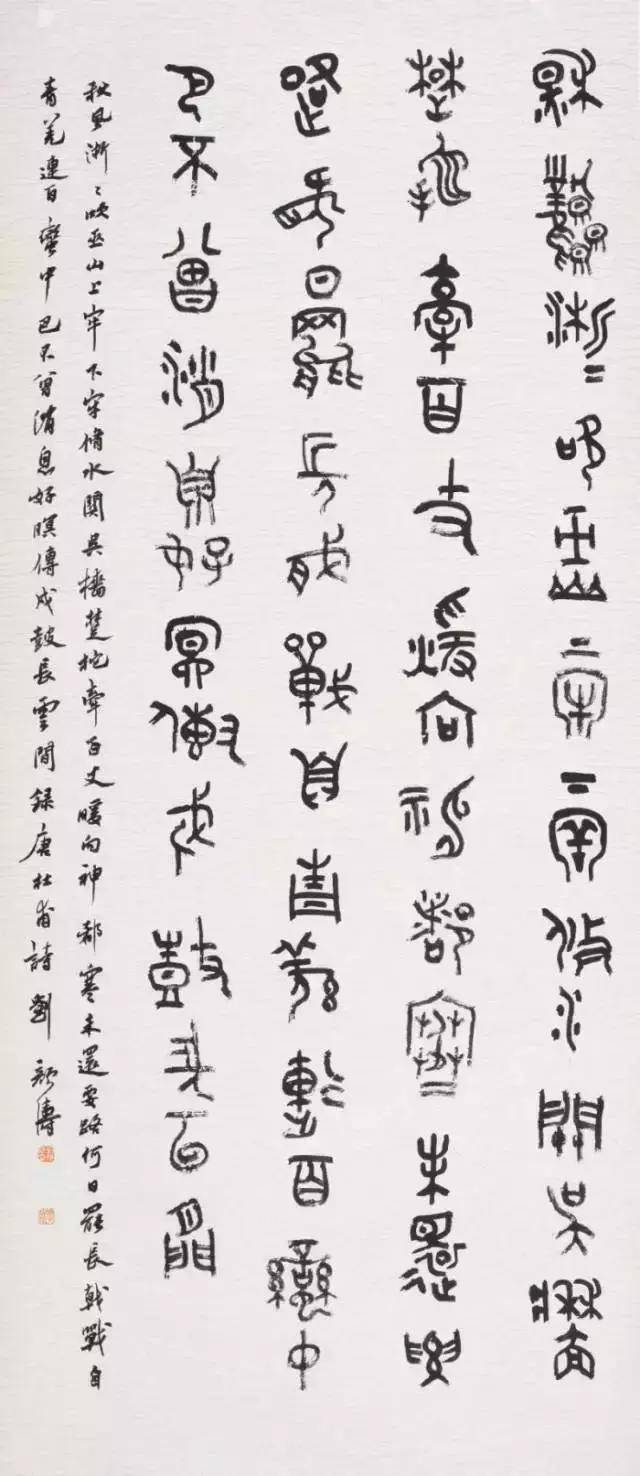 秋風淅〻吹巫山上牢下牢脩水關吳檣
楚柁牽百丈暖向神都寒未還要
路何日罷長戟戰自青羌連百蠻中
巴不曾消息好暝傳戍鼓長雲間
秋風淅〻吹巫山上牢下牢脩水關吳檣楚柁牽百丈暖向神都寒未還要路何日罷長戟戰自
青羌連百蠻中巴不曾消息好暝傳戍鼓長雲間錄唐杜甫詩劉顏濤